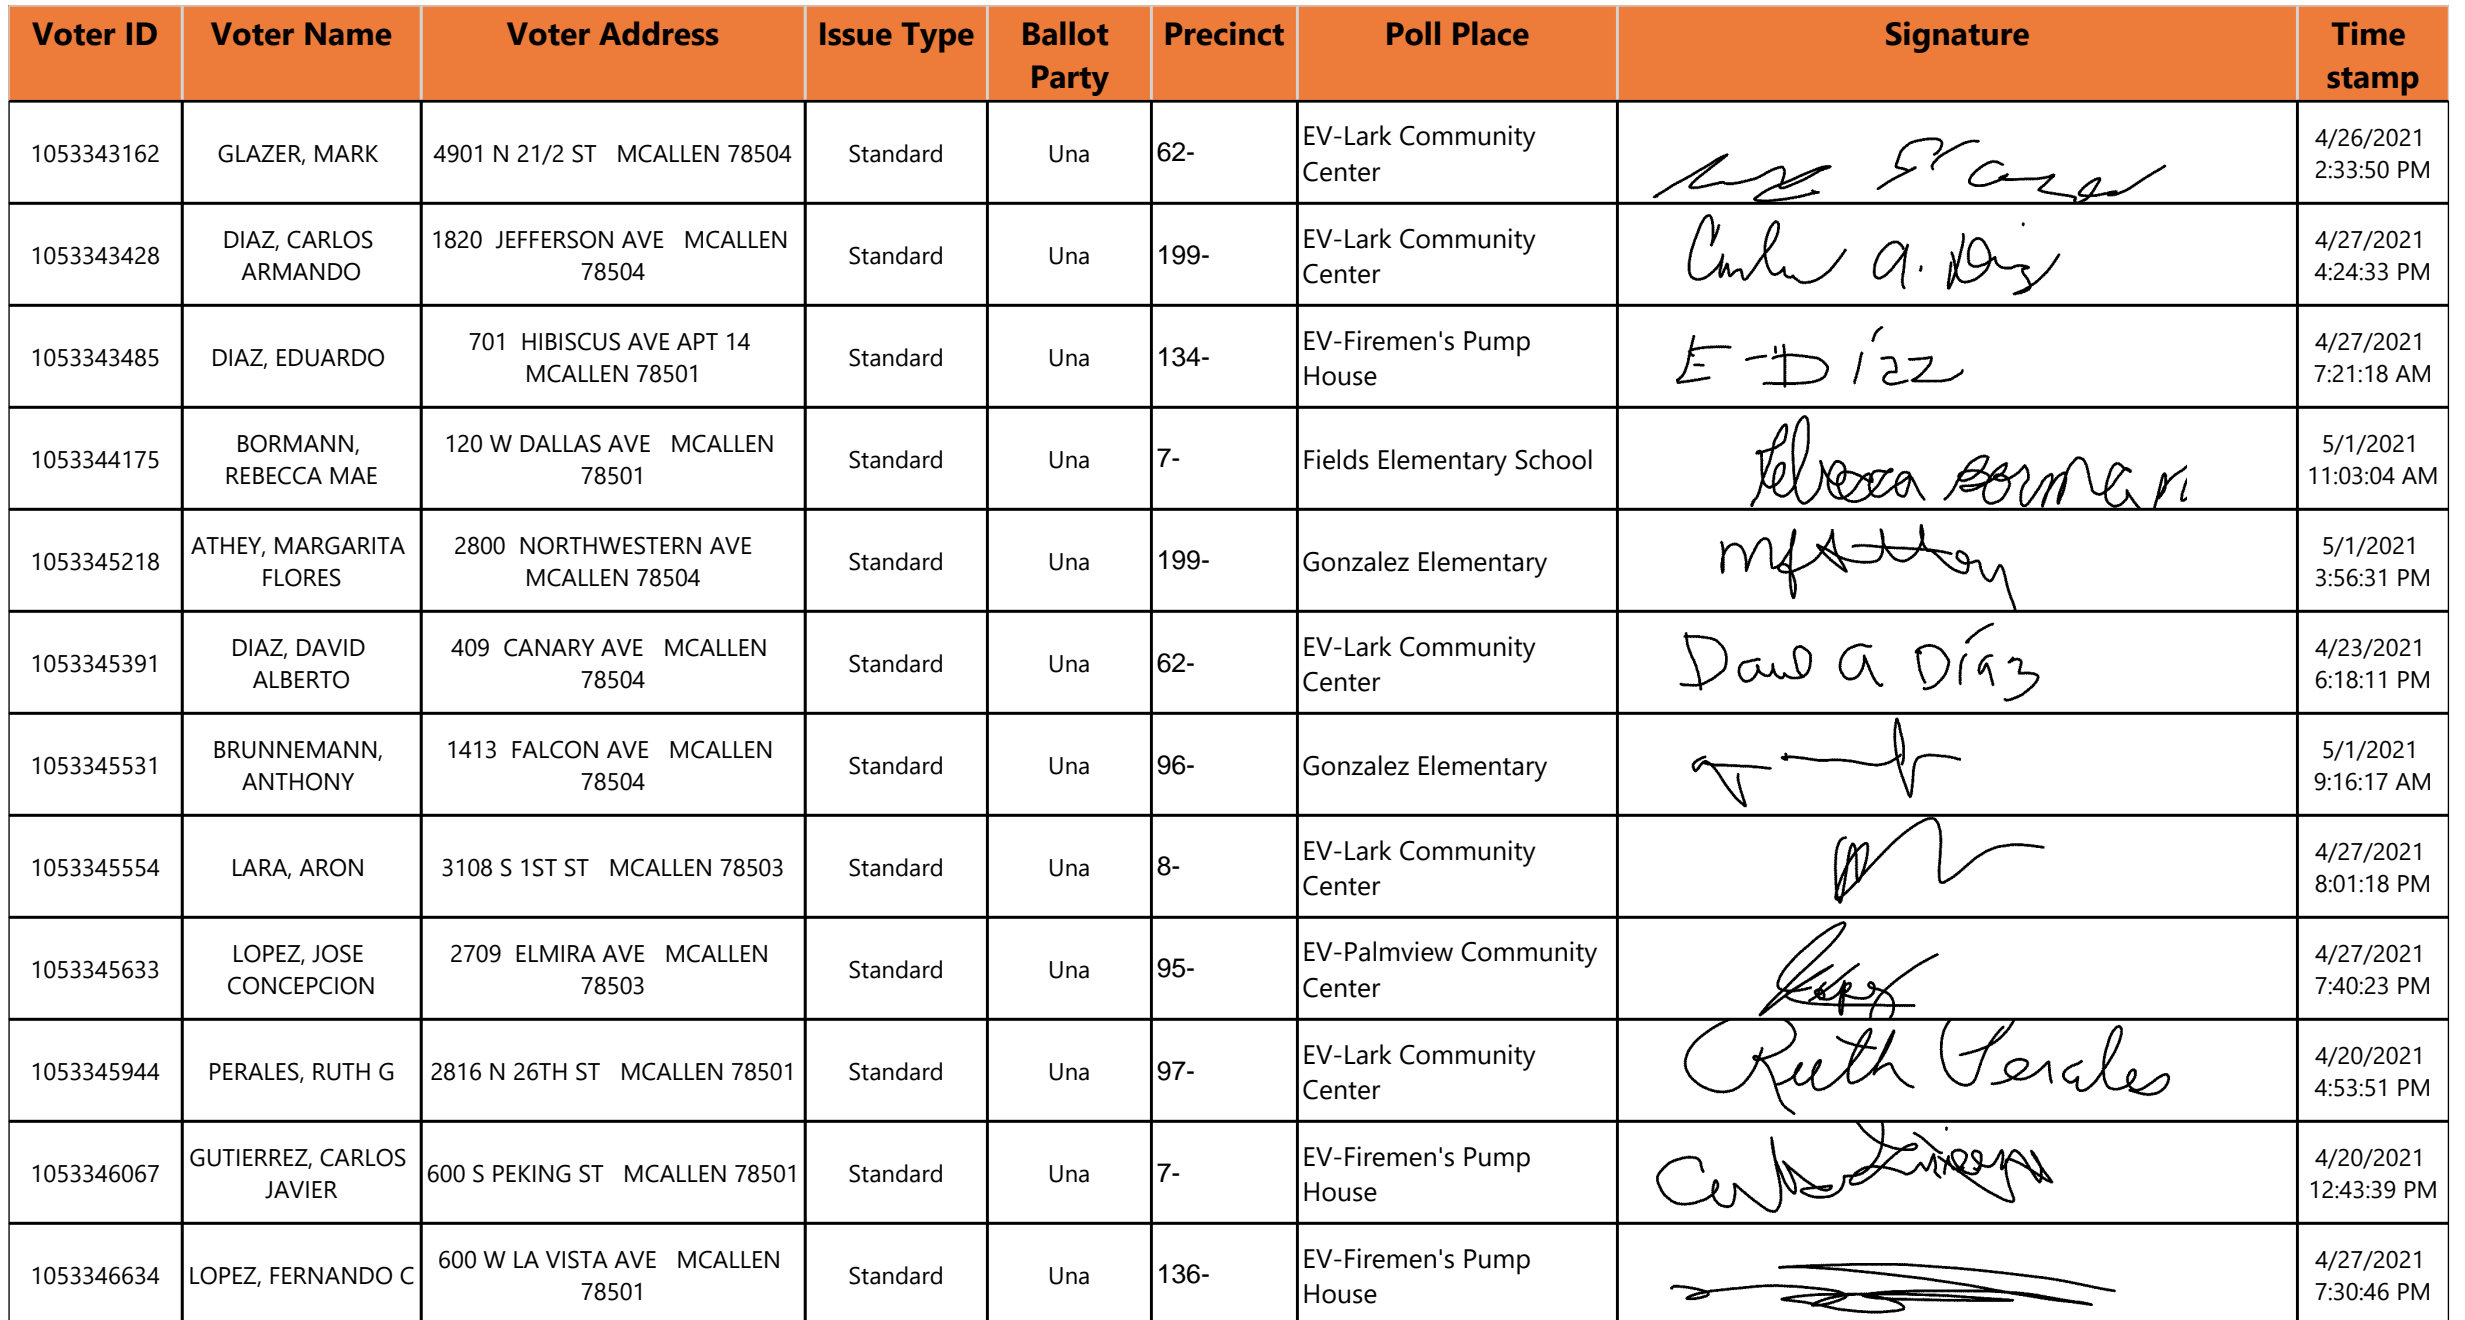 Voter ID Voter Name Voter Address Issue Type Ballot Party Precinct Poll Place Signature Time stamp
1053343162 GLAZER, MARK 4901 N 21/2 ST MCALLEN 78504 Standard Una 62- EV-Lark Community Center 4/26/2021 2:33:50 PM
1053343428 DIAZ, CARLOS ARMANDO 1820 JEFFERSON AVE MCALLEN 78504 Standard Una 199- EV-Lark Community Center Carlos A. Diaz 4/27/2021 4:24:33 PM
1053343485 DIAZ, EDUARDO 701 HIBISCUS AVE APT 14 MCALLEN 78501 Standard Una 134- EV-Firemen's Pump House E-Díaz 4/27/2021 7:21:18 AM
1053344175 BORMANN, REBECCA MAE 120 W DALLAS AVE MCALLEN 78501 Standard Una 7- Fields Elementary School Rebecca Bormann 5/1/2021 11:03:04 AM
1053345218 ATHEY, MARGARITA FLORES 2800 NORTHWESTERN AVE MCALLEN 78504 Standard Una 199- Gonzalez Elementary MF Athey 5/1/2021 3:56:31 PM
1053345391 DIAZ, DAVID ALBERTO 409 CANARY AVE MCALLEN 78504 Standard Una 62- EV-Lark Community Center David A Díaz 4/23/2021 6:18:11 PM
1053345531 BRUNNEMANN, ANTHONY 1413 FALCON AVE MCALLEN 78504 Standard Una 96- Gonzalez Elementary 5/1/2021 9:16:17 AM
1053345554 LARA, ARON 3108 S 1ST ST MCALLEN 78503 Standard Una 8- EV-Lark Community Center 4/27/2021 8:01:18 PM
1053345633 LOPEZ, JOSE CONCEPCION 2709 ELMIRA AVE MCALLEN 78503 Standard Una 95- EV-Palmview Community Center 4/27/2021 7:40:23 PM
1053345944 PERALES, RUTH G 2816 N 26TH ST MCALLEN 78501 Standard Una 97- EV-Lark Community Center Ruth Perales 4/20/2021 4:53:51 PM
1053346067 GUTIERREZ, CARLOS JAVIER 600 S PEKING ST MCALLEN 78501 Standard Una 7- EV-Firemen's Pump House 4/20/2021 12:43:39 PM
1053346634 LOPEZ, FERNANDO C 600 W LA VISTA AVE MCALLEN 78501 Standard Una 136- EV-Firemen's Pump House 4/27/2021 7:30:46 PM